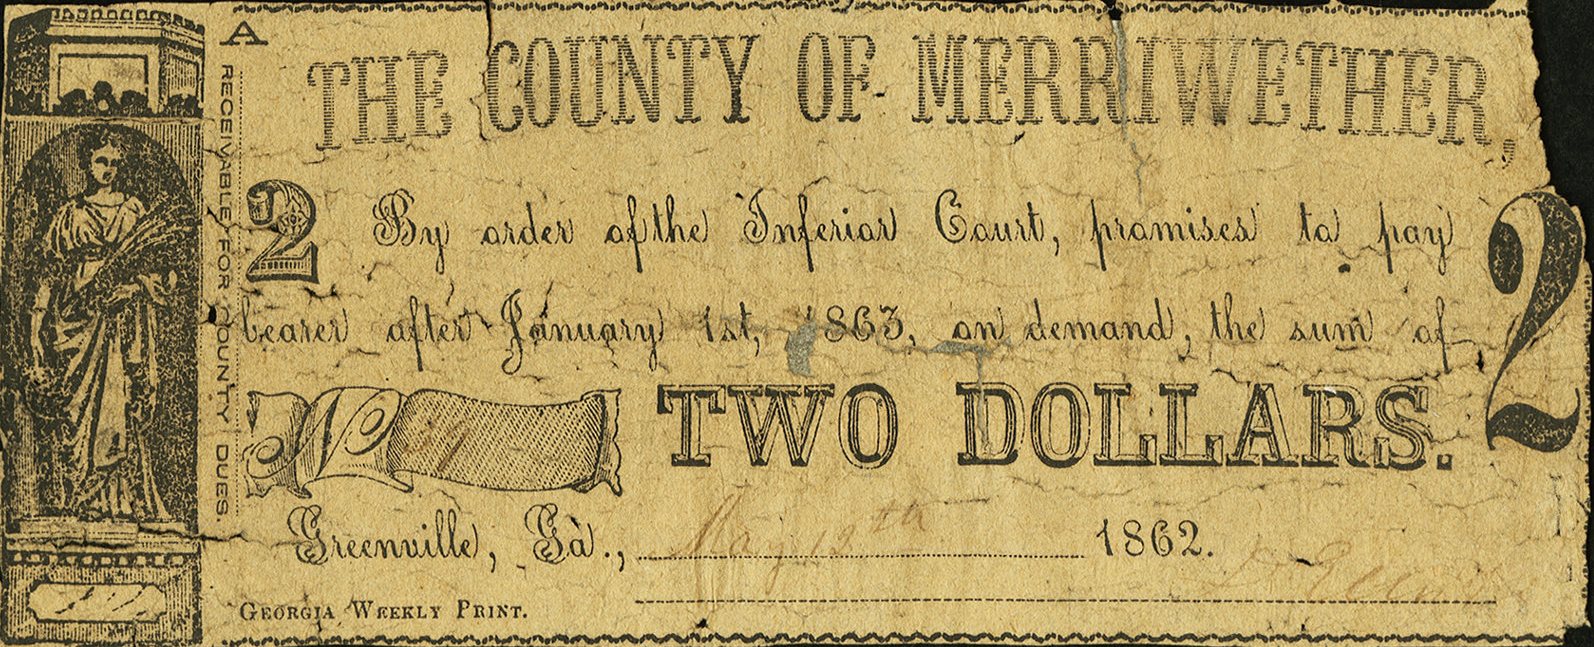 A
RECEIVABLE FOR COUNTY DUES.
THE COUNTY OF MERRIWETHER,
2 By order of the Inferior Court, promises to pay 2
bearer after January 1st, 1863, on demand, the sum of
No TWO DOLLARS.
Greenville, Ga., May 1862.
GEORGIA WEEKLY PRINT.